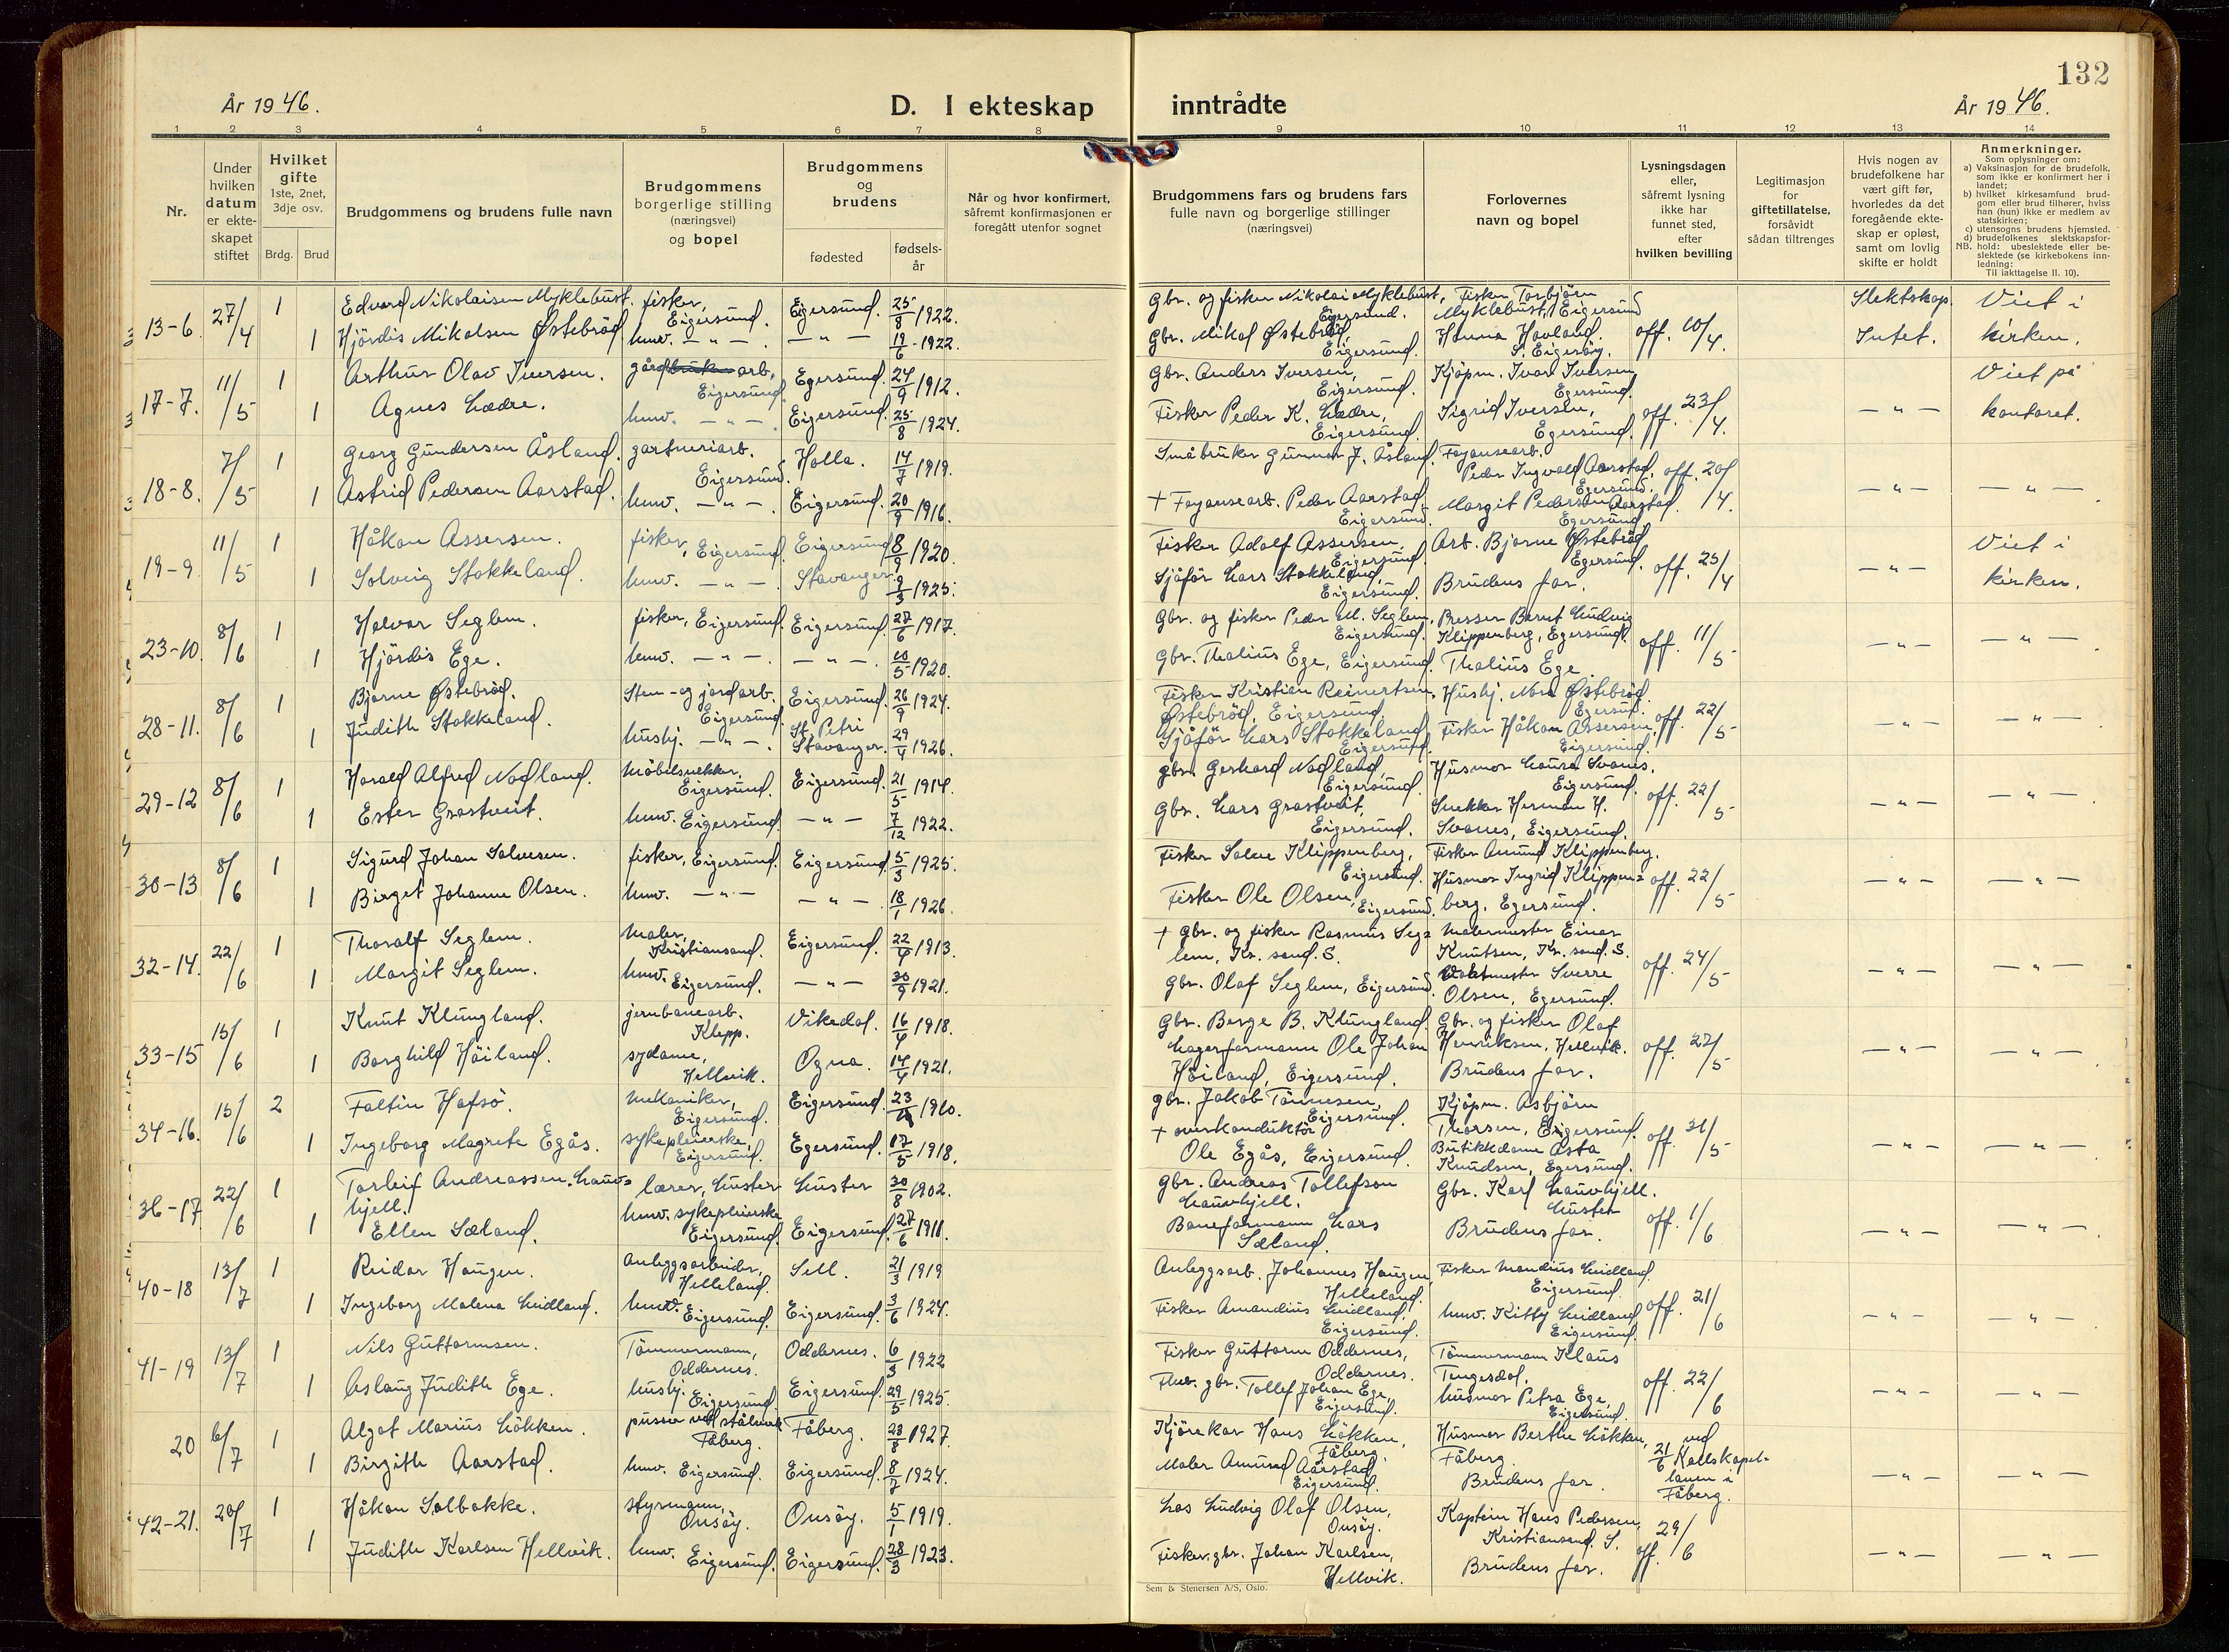 132
År 1946.
D. I ekteskap inntrådte
År 1946.
1 2 3 4 5 6 7 8 9 10 11 12 13 14
Nr.
Under hvilken datum er ekteskapet stiftet
Hvilket gifte 1ste, 2net, 3dje osv.
Brdg. Brud
Brudgommens og brudens fulle navn
Brudgommens borgerlige stilling (næringsvei) og bopel
Brudgommens og brudens
fødested
fødsels-år
Når og hvor konfirmert, såfremt konfirmasjonen er foregått utenfor sognet
Brudgommens fars og brudens fars fulle navn og borgerlige stillinger (næringsvei)
Forlovernes navn og bopel
Lysningsdagen eller, såfremt lysning ikke har funnet sted, efter hvilken bevilling
Legitimasjon for giftetillatelse, forsåvidt sådan tiltrenges
Hvis nogen av brudefolkene har vært gift før, hvorledes da det foregående ekteskap er opløst, samt om lovlig skifte er holdt
Anmerkninger.
Som oplysninger om:
a) Vaksinasjon for de brudefolk, som ikke er konfirmert her i landet;
b) hvilket kirkesamfund brudgom eller brud tilhører, hviss han (hun) ikke er medlem av statskirken;
c) utensogns brudens hjemsted.
d) brudefolkenes slektskapsforhold: ubeslektede eller beslektede (se kirkebokens innledning:
NB. Til iakttagelse II. 10).
13-6. 27/4 1 Edvard Nikolaisen Myklebust. fisker, Eigersund. Eigersund. 25/8 1922. Gbr. og fisker Nikolai Myklebust, Eigersund. Fisker Torbjörn Myklebust, Eigersund off. 10/4. Slektskap. Viet i
1 Hjördis Mikalsen Østebröd huv. — " — . — " — 19/6 - 1922. Gbr. Mikal Østebröd, Eigersund. Hanna Havland, S. Eigeröy. Intet. kirken.
17-7. 11/5 1 Arthur Olav Iversen. gårdbruker arb, Eigersund Egersund. 24/9 1912. Gbr. Anders Iversen, Eigersund. Kjøpm. Ivar Iversen Egersund. off. 23/4. Viet på
1 Agnes Lædre. huv. — " — . Eigersund. 25/8 1924. Fisker Peder K. Lædre, Eigersund. Sigrid Iversen, Egersund. — " — kontoret.
18-8. 7/5 1 Georg Gundersen Åsland. gartneriarb. Eigersund. Holla. 14/7 1919. Småbruker Gunnar J. Åsland. Fayansearb. Peder Ingvald Aarstad, Egersund. off. 20/4.
1 Astrid Pedersen Aarstad. huv. — " — . Eigersund. 20/9 1916. + Fayansearb. Peder Aarstad Eigersund. Margit Pedersen Aarstad. Egersund — " — — " —
19-9. 11/5 1 Håkon Assersen. fisker, Eigersund. Eigersund 8/9 1920. Fisker Adolf Assersen, Eigersund. Arb. Bjarne Østebröd Egersund. off. 25/4 Viet i
1 Solveig Stokkeland. huv. — " — Stavanger. 9/3 1925. Sjåför Lars Stokkeland, Eigersund. Brudens far. — " — kirken.
23-10. 8/6 1 Halvar Seglem. fisker, Eigersund. Eigersund. 27/6 1917. Gbr. og fisker Peder M. Seglem, Eigersund. Presser Bernt Ludvig Klippenberg, Egersund. off. 11/5
1 Hjördis Ege. huv. — " — . — " — . 10/5 1920. Gbr. Thalius Ege, Eigersund. Thalius Ege. — " — — " —
28-11. 8/6 1 Bjarne Østebröd. Sten-og jordarb. Eigersund. Eigersund. 26/9 1924. Fisker Kristian Reinertsen Østebröd, Eigersund. Hushj. Nora Østebröd. Egersund. off. 22/5
1 Judith Stokkeland. hushj. — " — . St. Petri Stavanger. 29/4 1926. Sjåför Lars Stokkeland Eigersund. Fisker Håkon Assersen, Eigersund. — " — — " —
29-12 8/6 1 Harald Alfred Nodland. Möbelsnekker, Eigersund. Eigersund. 21/5 1914. Gbr. Gerhard Nodland, Eigersund. Husmor Laura Svanes, Eigersund. off. 22/5
1 Ester Grastveit. huv. Eigersund. — " — 7/12 1922. Gbr. Lars Grastveit, Eigersund. Snekker Herman H. Svanes, Eigersund. — " — — " —
30-13 8/6 1 Sigurd Johan Solvesen. fisker, Eigersund. Eigersund. 5/3 1925. Fisker Salve Klippenberg, Eigersund. Fisker Amund Klippenberg. off. 22/5
1 Birget Johanne Olsen. huv. — " — — " — . 18/1 1926. Fisker Ole Olsen, Eigersund. Husmor Ingrid Klippenberg, Egersund. — " — — " —
32-14. 22/6 1 Thoralf Seglem. Maler, Kristiansand. Eigersund. 22/4 1913. + Gbr. og fisker Rasmus Seglem, Kr. sand. S. Malermester Einar Knutsen, Kr. sand. S. off. 24/5
1 Margit Seglem. huv. Eigersund. — " — 30/9 1921. Gbr. Olaf Seglem, Eigersund. Vaktmester Sverre Olsen, Egersund. — " — — " —
33-15 15/6 1 Knut Klungland. jernbanearb. Klepp. Vikedal. 16/4 1918. Gbr. Berge B. Klungland. Gbr. og fisker Olaf Henriksen, Hellvik. off. 27/5
1 Borghild Höiland. sydame, Hellvik. Ogna. 14/4 1921. Lagerformann Ole Johan Höiland, Eigersund. Brudens far. — " — — " —
34-16. 15/6 2 Faltin Hafsö. Mekaniker, Eigersund. Eigersund. 23/ 1910. Gbr. Jakob Tönnesen, Eigersund. Kjøpm. Asbjörn Thorsen, Eigersund. off. 31/5
1 Ingeborg Magrete Egås. sykepleierske, Eigersund. Egersund. 17/5 1918. + overkonduktör Ole Egås, Eigersund. Butikkdame Asta Knudsen, Egersund. — " — — " —
36-17 22/6 1 Torleif Andreassen Lauvhjell. lærer, Luster Luster 30/8 1902. Gbr. Andreas Tollefson Lauvhjell. Gbr. Karl Lauvhjell. Luster off. 1/6
1 Ellen Sæland. huv. sykepleierske Eigersund. Eigersund. 27/6 1911. Baneformann Lars Sæland. Brudens far. — " — — " —
40-18 13/7 1 Reidar Haugen. Anleggsarbeider, Helleland. Sell. 21/3 1919 Anleggsarb. Johannes Haugen, Helleland. Fisker Mandius Leidland. Eigersund. off. 21/6
1 Ingeborg Malena Leidland. huv. Eigersund. Eigersund. 3/6 1924. Fisker Amandius Leidland, Eigersund. huv. Kitty Leidland, Eigersund. — " — — " —
41-19 13/7 1 Nils Guttormsen. Tömmermann, Oddernes. Oddernes. 6/3 1922 Fisker Guttorm Oddernes, Oddernes. Tömmermann Klaus Tengesdal. off. 22/6
1 Aslaug Judith Ege. hushj. Eigersund. Eigersund. 29/5 1925. gbr. Tollef Johan Ege, Eigersund. Husmor Petra Ege, Eigersund. — " — — " —
20 6/7 1 Algot Marius Lökken. pusser ved stålverk Fåberg. Fåberg. 23/3 1927. Kjörekar Hans Lökken, Fåberg. Husmor Berthe Lökken, Fåberg. 21/6 ved Kallskapellanen i Fåberg.
1 Birgith Aarstad. huv. Eigersund. Eigersund. 8/2 1924. Maler Amund Aarstad Eigersund. Brudens far. — " — — " —
42-21. 20/7 1 Håkon Solbakke. styrmann, Onsöy. Onsöy. 5/1 1919. Los Ludvig Olaf Olsen, Onsöy. Kaptein Hans Pedersen, Kristiansand. S. off. 29/6
1 Judith Karlsen Hellvik. huv. Eigersund. Eigersund. 28/3 1923. Fisker, gbr. Johan Karlsen, Hellvik. Brudens far. — " — — " —
Sem & Stenersen A/S, Oslo.